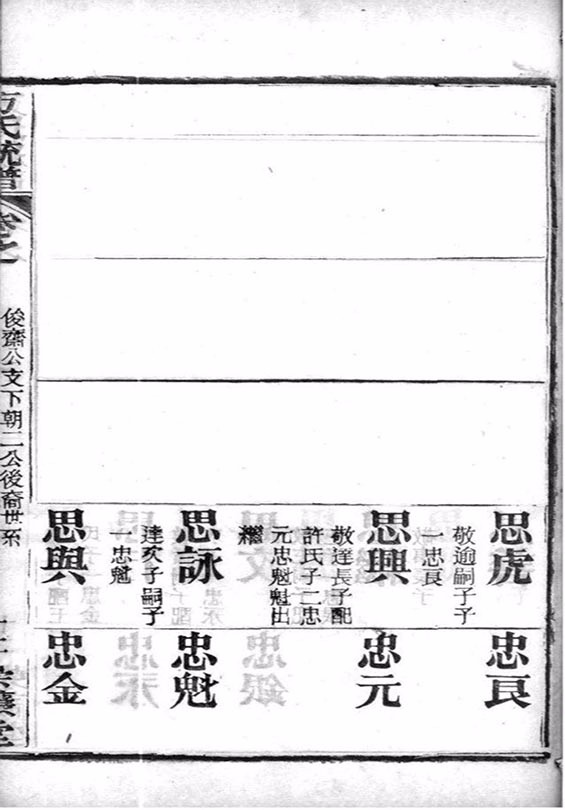 思虎
敬逾嗣子子
一忠良
思興
敬達長子配
許氏子二忠
元忠魁魁出
繼
思詠
達次子嗣子
一忠魁
思與
忠良
忠元
忠魁
忠金
方氏統譜
卷之
俊齋公支下朝二公後裔世系